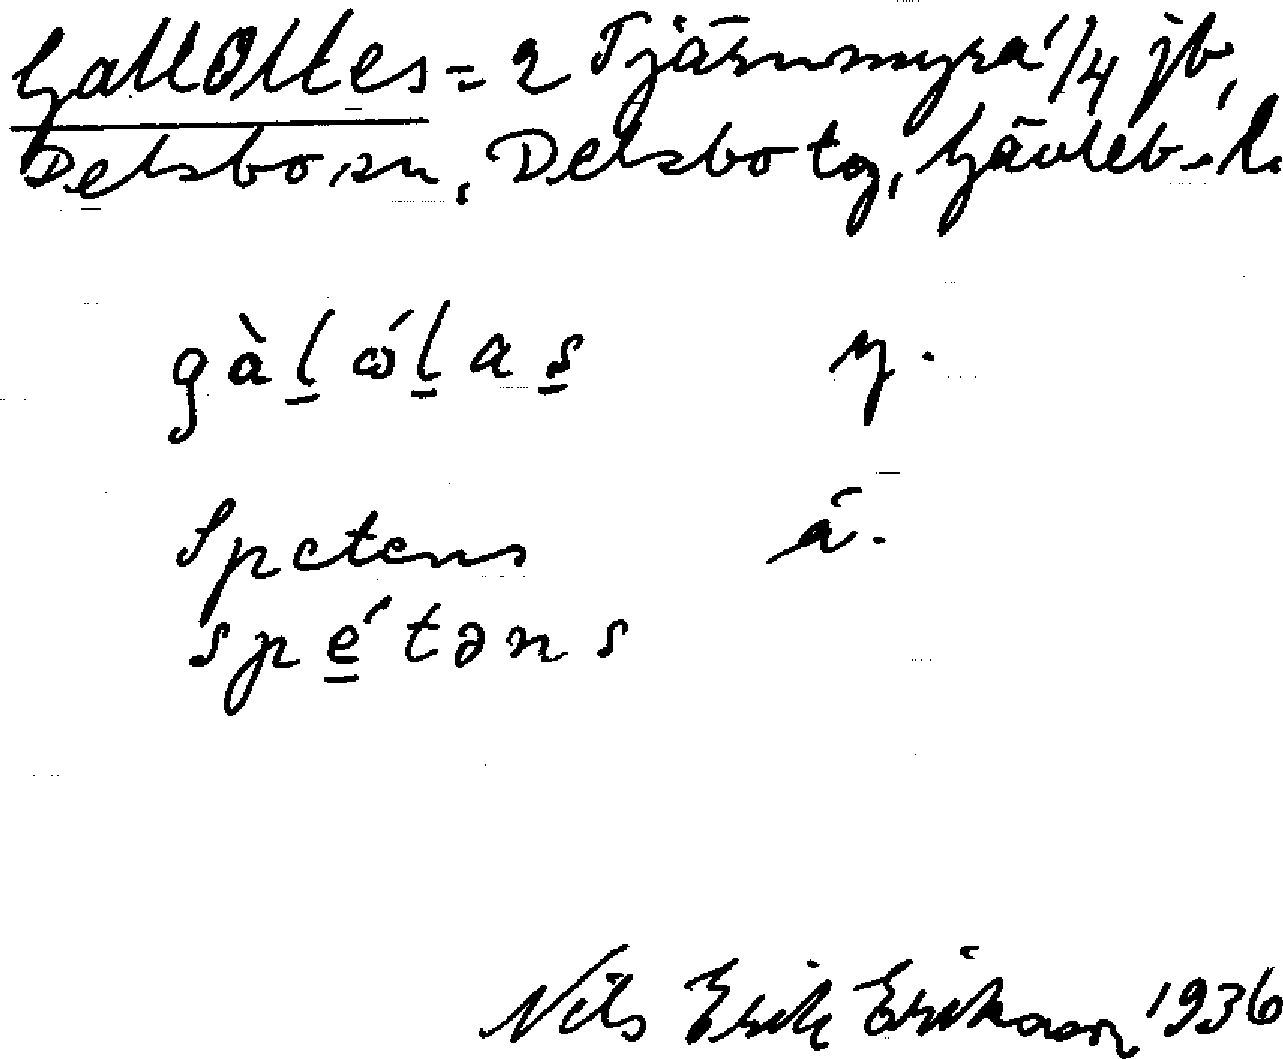 GallOlles = 2 Tjärnmyra 1/4 jb,
Delsbo sn, Delsbo tg, Gävleb. l.
gàl̲ώl̲as̲ y.
Spetens ä.
spé̲təns
Nils Erik Erikson 1936